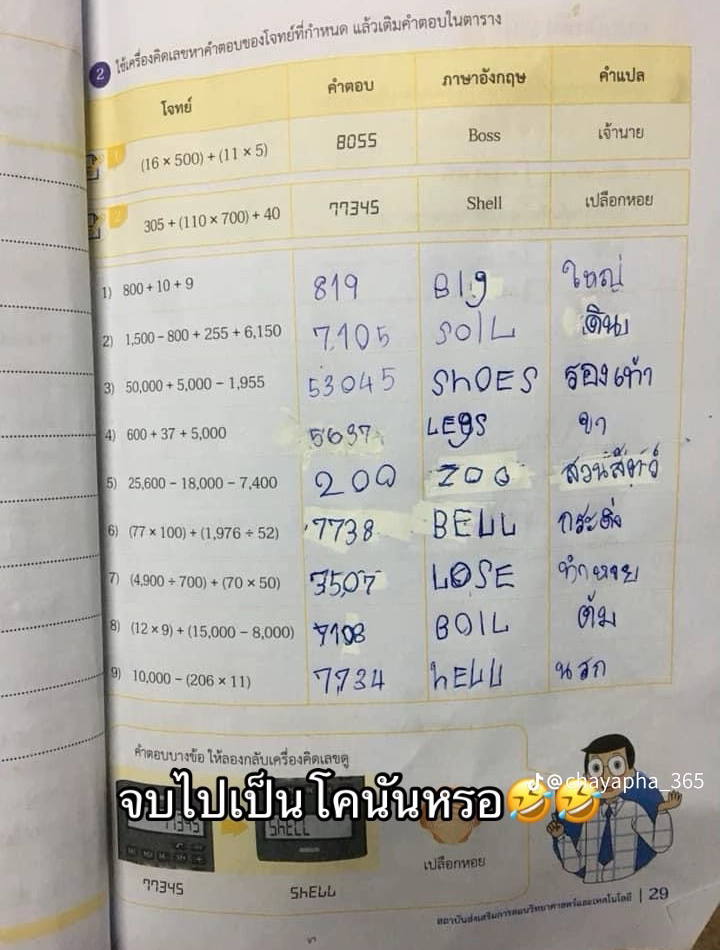 2 ใช้เครื่องคิดเลขหาคำตอบของโจทย์ที่กำหนด แล้วเติมคำตอบในตาราง
โจทย์ คำตอบ ภาษาอังกฤษ คำแปล
(16 × 500) + (11 × 5) 8055 Boss เจ้านาย
2 305 + (110 × 700) + 40 77345 Shell เปลือกหอย
1) 800 + 10 + 9 819 BIg ใหญ่
2) 1,500 – 800 + 255 + 6,150 7105 SOIL ดิน
3) 50,000 + 5,000 – 1,955 53045 ShOES รองเท้า
4) 600 + 37 + 5,000 5637 LEgS ขา
5) 25,600 – 18,000 – 7,400 200 ZOO สวนสัตว์
6) (77 × 100) + (1,976 ÷ 52) 7738 BELL กระดิ่ง
7) (4,900 ÷ 700) + (70 × 50) 3507 LOSE ทำหาย
8) (12 × 9) + (15,000 – 8,000) 7108 BOIL ต้ม
9) 10,000 – (206 × 11) 7734 hELL นรก
คำตอบบางข้อ ให้ลองกลับเครื่องคิดเลขดู
@chayapha_365
จบไปเป็น โคนันหรอ🤣🤣
77345 ShELL
เปลือกหอย
77345 ShELL
สถาบันส่งเสริมการสอนวิทยาศาสตร์และเทคโนโลยี | 29